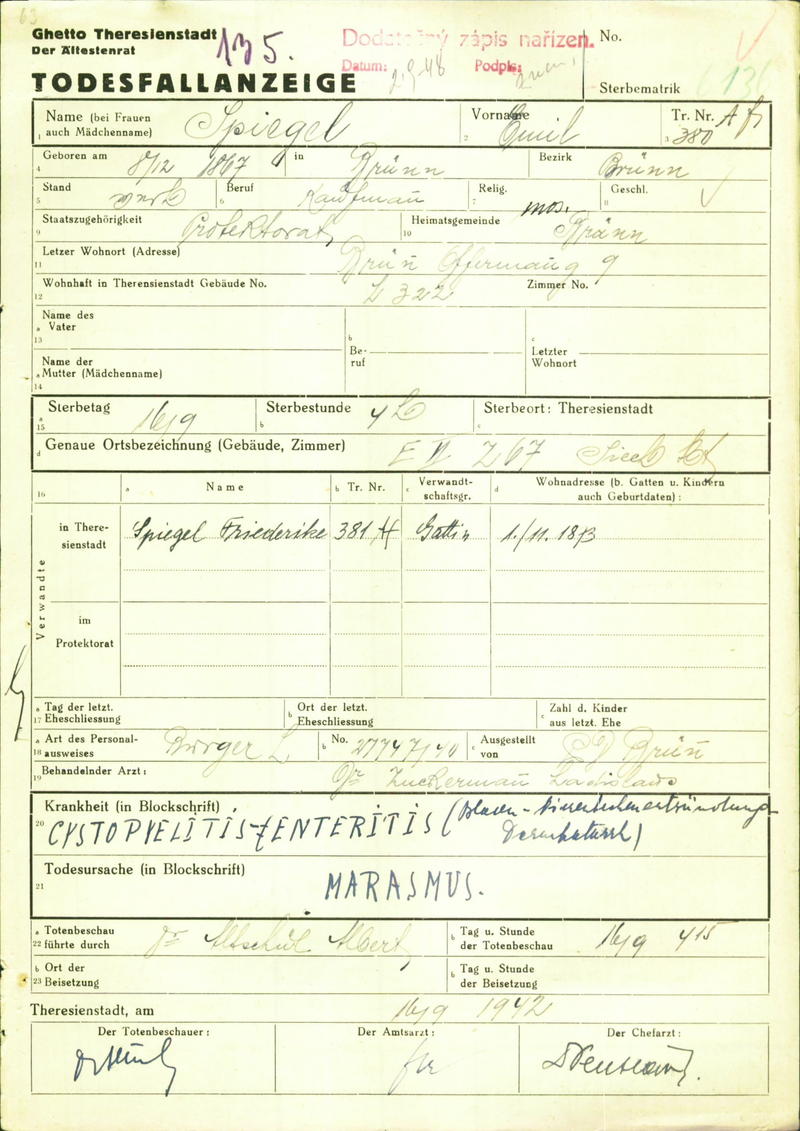 63
Ghetto Theresienstadt
Der Ältestenrat
135.
Dodatečný zápis nařízen.
Datum: 2.9.48 Podpis:
No.
TODESFALLANZEIGE
Sterbematrik 136
Name (bei Frauen auch Mädchenname) Spiegel
Vorname Emil
Tr. Nr. 380
Geboren am 8/12 1867 in Brünn Bezirk Brünn
Stand verh Beruf Kaufmann Relig. mos. Geschl.
Staatszugehörigkeit Protektorat Heimatsgemeinde Brünn
Letzer Wohnort (Adresse) Brünn 9
Wohnhaft in Therensienstadt Gebäude No. L 322 Zimmer No.
Name des Vater
Beruf
Letzter Wohnort
Name der Mutter (Mädchenname)
Sterbetag 16/9 Sterbestunde 4 h Sterbeort: Theresienstadt
Genaue Ortsbezeichnung (Gebäude, Zimmer) E VI Z 67
Name Tr. Nr. Verwandtschaftsgr. Wohnadresse (b. Gatten u. Kindern auch Geburtdaten):
Verwandte
in Theresienstadt Spiegel Friederike 381 Gattin 1./11. 1873
im Protektorat
Tag der letzt. Eheschliessung
Ort der letzt. Eheschliessung
Zahl d. Kinder aus letzt. Ehe
Art des Personalausweises Bürger L No. 27747/40 Ausgestellt von PD Brünn
Behandelnder Arzt: Dr Zuckermann Ladislaus
Krankheit (in Blockschrift)
CYSTOPYELITIS-ENTERITIS (Blasen-Nierenbeckenentzündung
Darmkatarrh)
Todesursache (in Blockschrift)
MARASMUS.
Totenbeschau führte durch Dr Altschul Albert
Tag u. Stunde der Totenbeschau 16/9 415
Ort der Beisetzung
Tag u. Stunde der Beisetzung
Theresienstadt, am 16/9 1942
Der Totenbeschauer: Der Amtsarzt: Der Chefarzt: